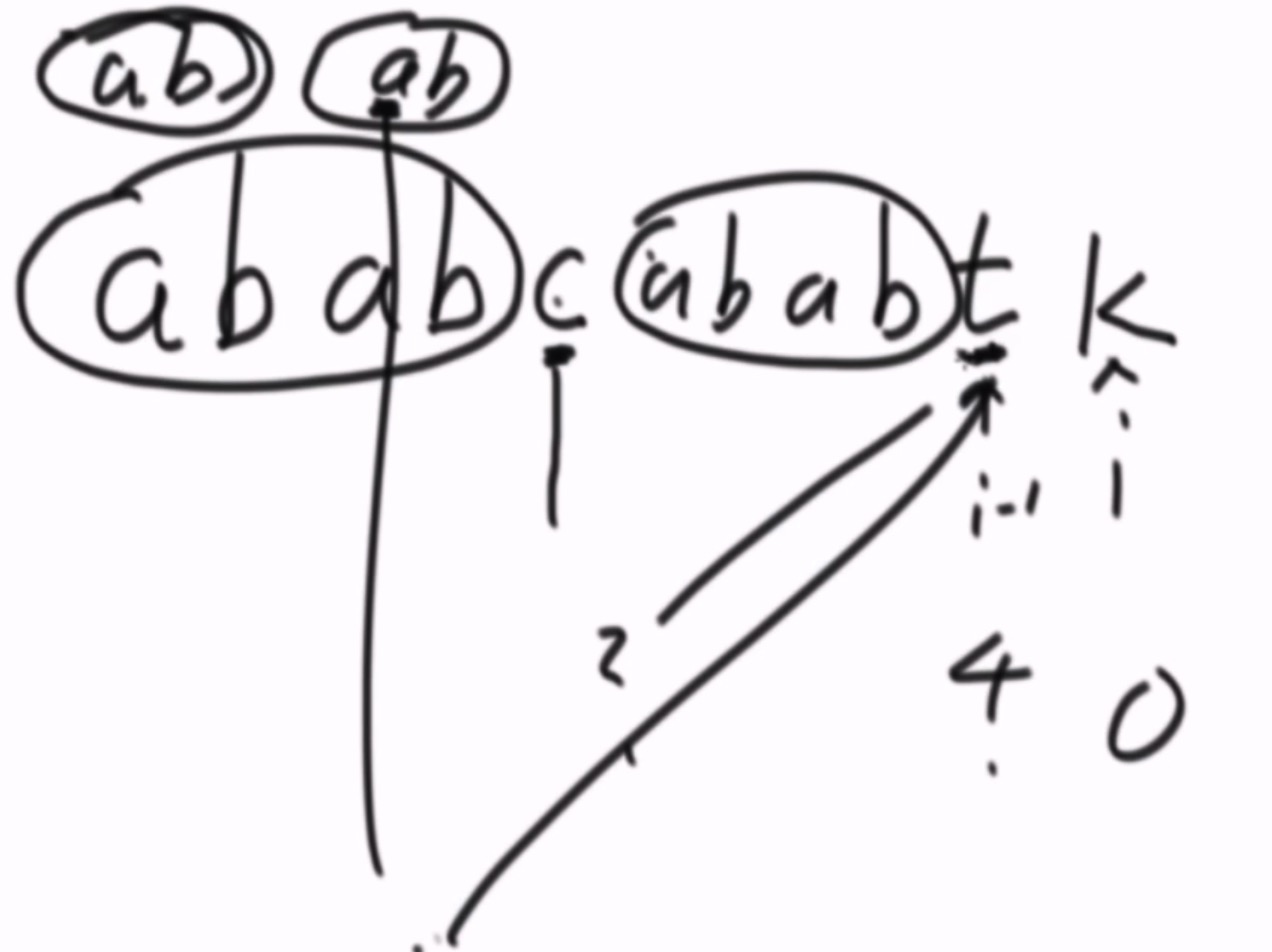 ab ab
ababcababtk
i-1 i
2 4 0